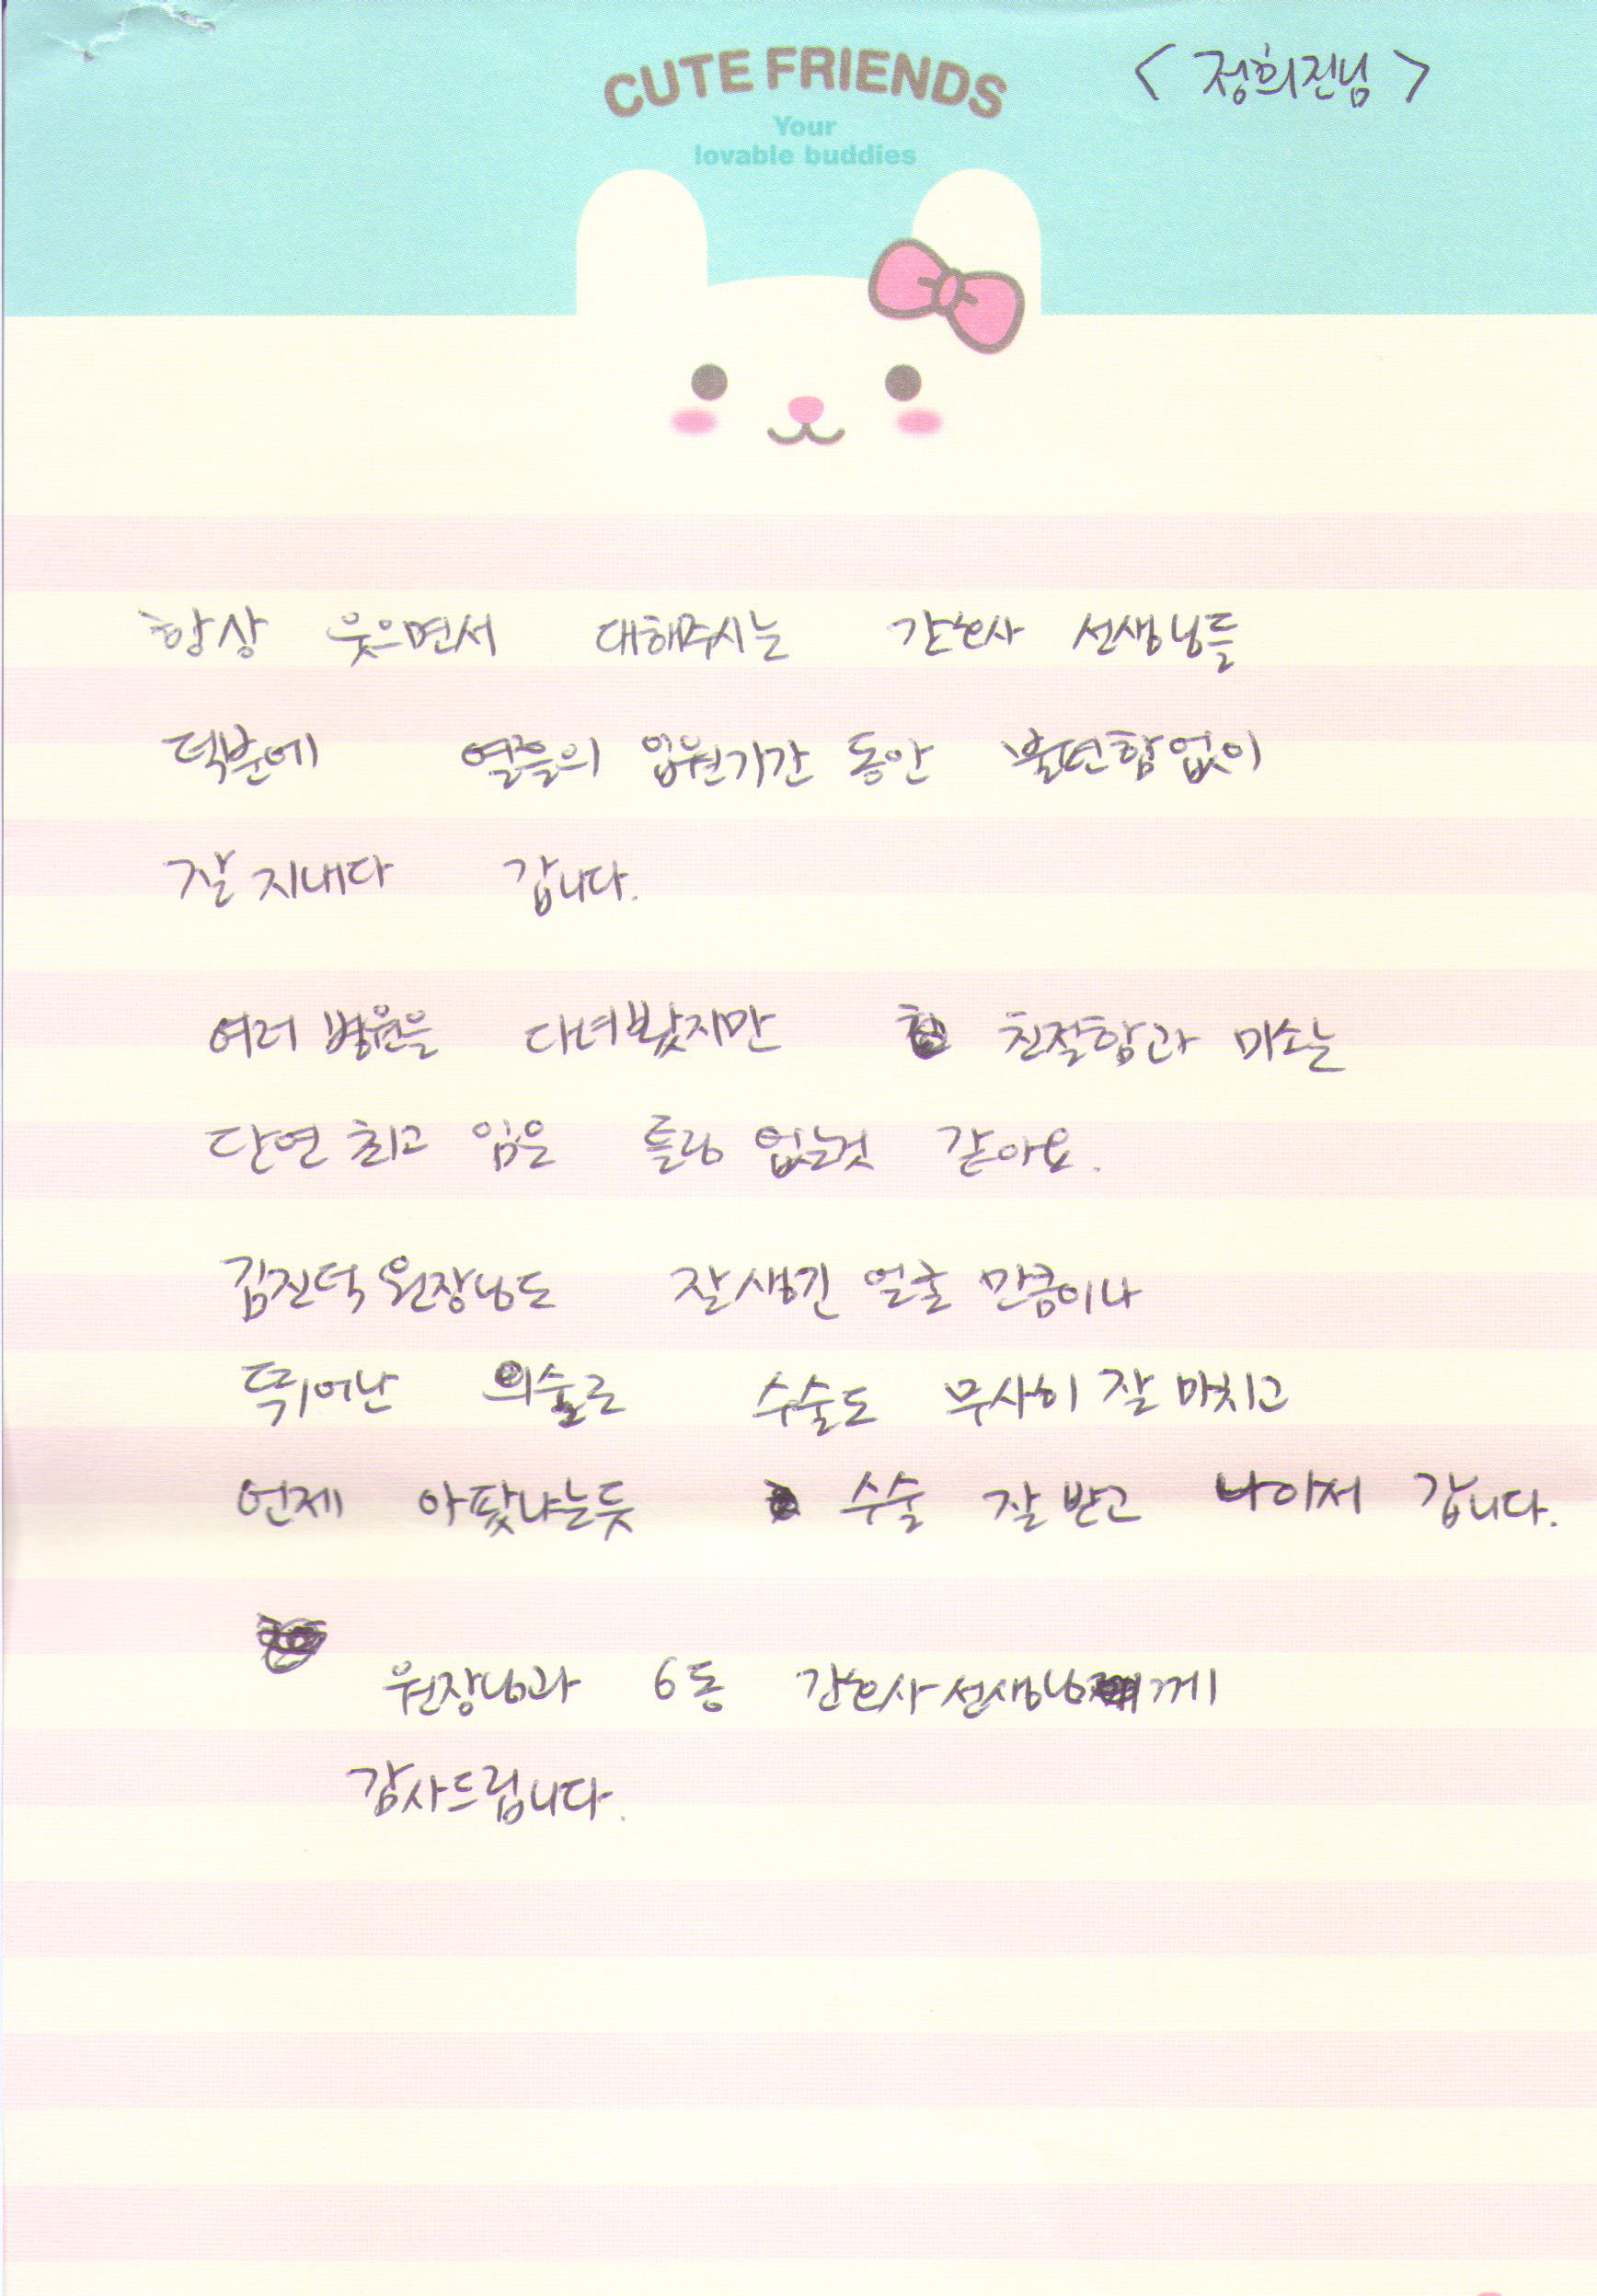 CUTE FRIENDS
Your
lovable buddies
< 정희진님 >
항상 웃으면서 대해주시는 간호사 선생님들
덕분에 열흘의 입원기간 동안 불편함없이
잘 지내다 갑니다.
여러 병원을 다녀봤지만 친절함과 미소는
단연 최고 임은 틀링 없는것 같아요.
김진덕 원장님도 잘생긴 얼굴 만큼이나
뛰어난 의술로 수술도 무사히 잘 마치고
언제 아팠냐는듯 수술 잘 받고 나아서 갑니다.
원장님과 6동 간호사선생님께
감사드립니다.